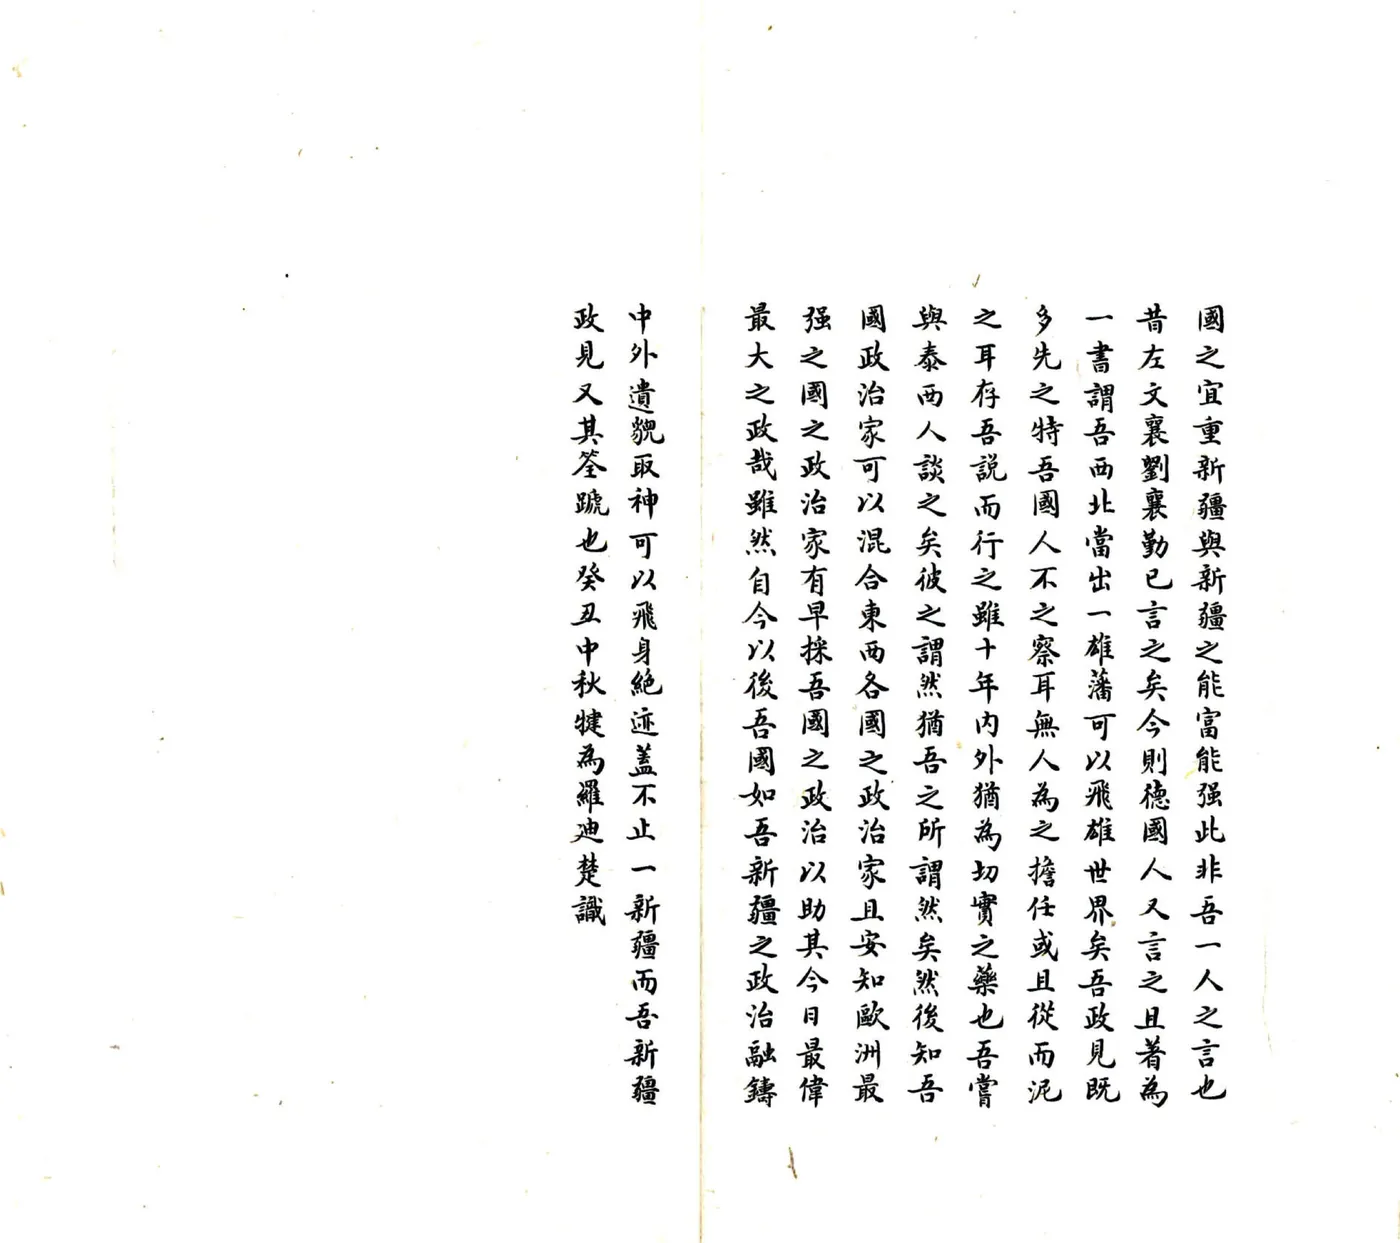 國之宜重新疆與新疆之能富能强此非吾一人之言也
昔左文襄劉襄勤已言之矣今則德國人又言之且著為
一書謂吾西北當出一雄藩可以飛雄世界矣吾政見既
多先之特吾國人不之察耳無人為之擔任或且從而泥
之耳存吾說而行之雖十年内外猶為切實之藥也吾嘗
與泰西人談之矣彼之謂然猶吾之所謂然矣然後知吾
國政治家可以混合東西各國之政治家且安知歐洲最
强之國之政治家有早採吾國之政治以助其今日最偉
最大之政哉雖然自今以後吾國如吾新疆之政治融鑄
中外遺貌取神可以飛身絶迹蓋不止一新疆而吾新疆
政見又其筌蹏也癸丑中秋犍為羅迪楚識